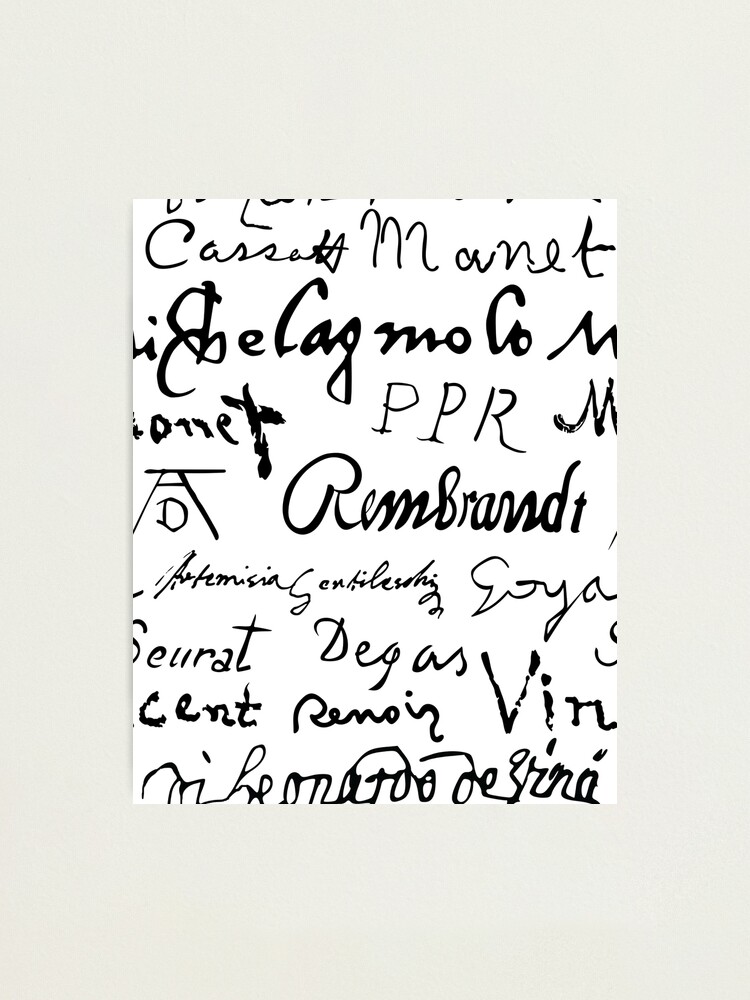 Cassatt Manet
ichelagmolo M
onet PPR M
AD Rembrandt
Artemisia Gentileschi Goya
Seurat Degas S
cent Renoir Vin
Leonardo